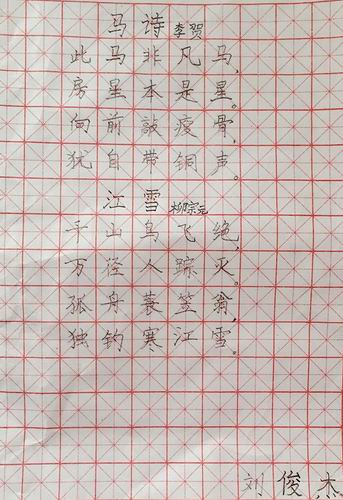 马诗 李贺
此马非凡马,
房星本是星。
向前敲瘦骨,
犹自带铜声。
江雪 柳宗元
千山鸟飞绝,
万径人踪灭。
孤舟蓑笠翁,
独钓寒江雪。
刘俊杰